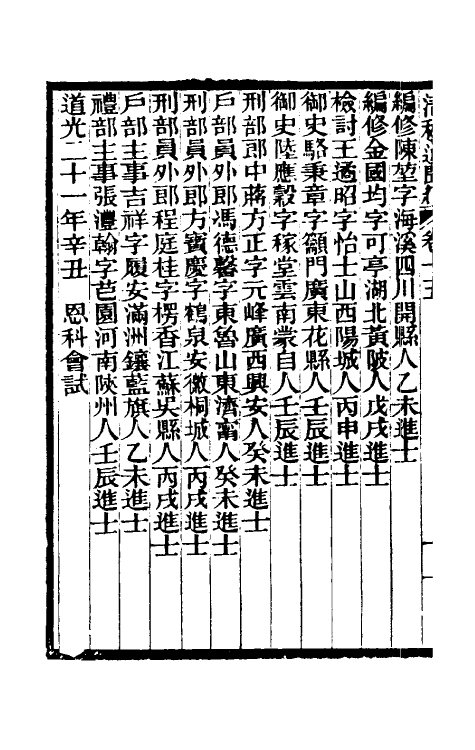 編修陳堃字海溪四川開縣人乙未進士
編修金國均字可亭湖北黃陂人戊戌進士
檢討王遹昭字怡士山西陽城人丙申進士
御史駱秉章字籲門廣東花縣人壬辰進士
御史陸應穀字稼堂雲南蒙自人壬辰進士
刑部郎中蔣方正字元峰廣西興安人癸未進士
戶部員外郎馮德馨字東魯山東濟甯人癸未進士
刑部員外郎方寶慶字鶴泉安徽桐城人丙戌進士
刑部員外郎程庭桂字楞香江蘇吳縣人丙戌進士
戶部主事吉祥字履安滿洲鑲藍旗人乙未進士
禮部主事張灃翰字芭園河南陝州人壬辰進士
道光二十一年辛丑 恩科會試